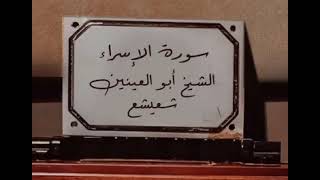 سورة الإسراء
الشيخ أبو العينين
شعيشع